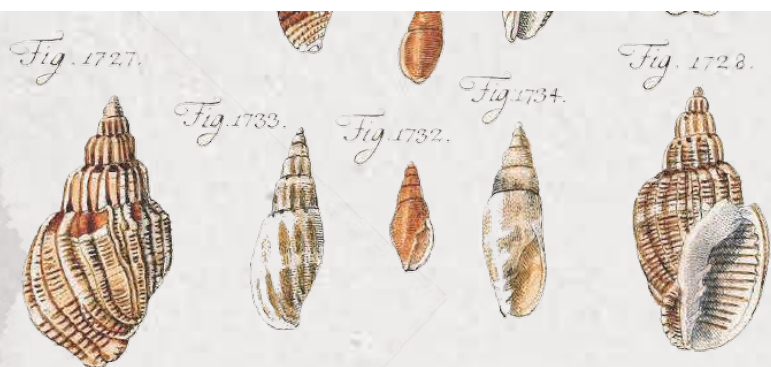 Fig. 1727.
Fig. 1733.
Fig. 1732.
Fig. 1734.
Fig. 1728.